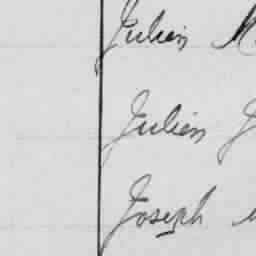 Julien M.
Julien J
Joseph